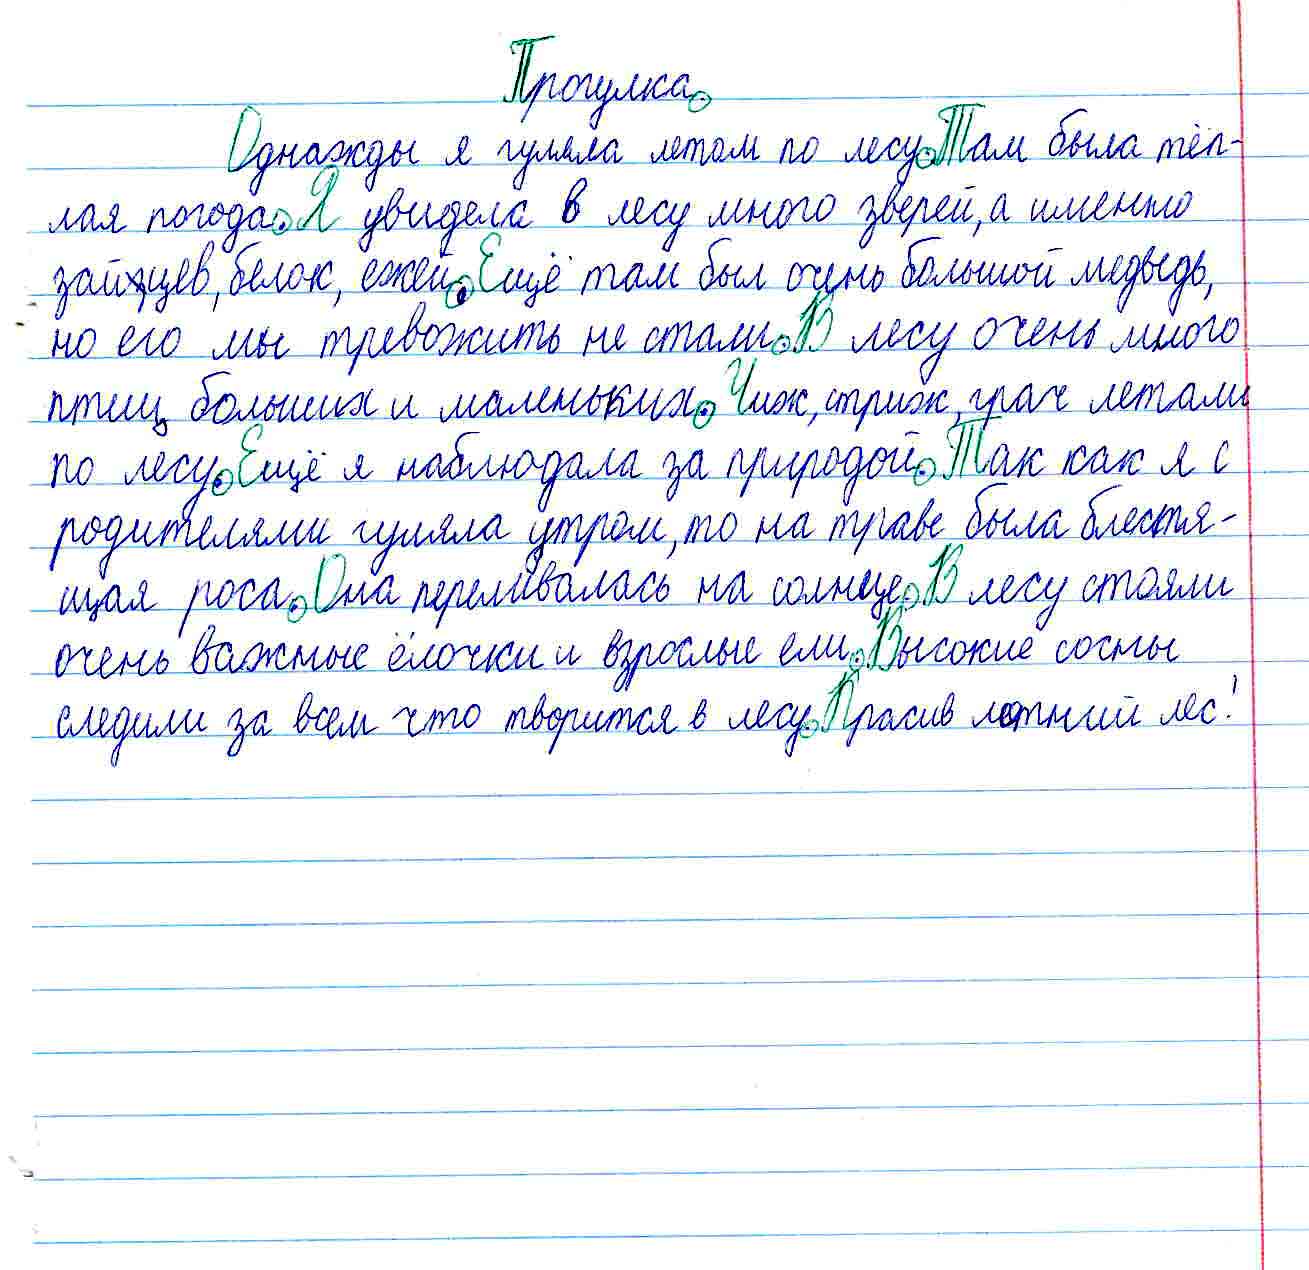 Прогулка.
Однажды я гуляла летом по лесу. Там была тёп-
лая погода. Я увидела в лесу много зверей, а именно
зайцев, белок, ежей. Ещё там был очень большой медведь,
но его мы тревожить не стали. В лесу очень много
птиц больших и маленьких. Чиж, стриж, грач летали
по лесу. Ещё я наблюдала за природой. Так как я с
родителями гуляла утром, то на траве была блестя-
щая роса. Она переливалась на солнце. В лесу стояли
очень важные ёлочки и взрослые ели. Высокие сосны
следили за всем что творится в лесу. Красив летний лес!